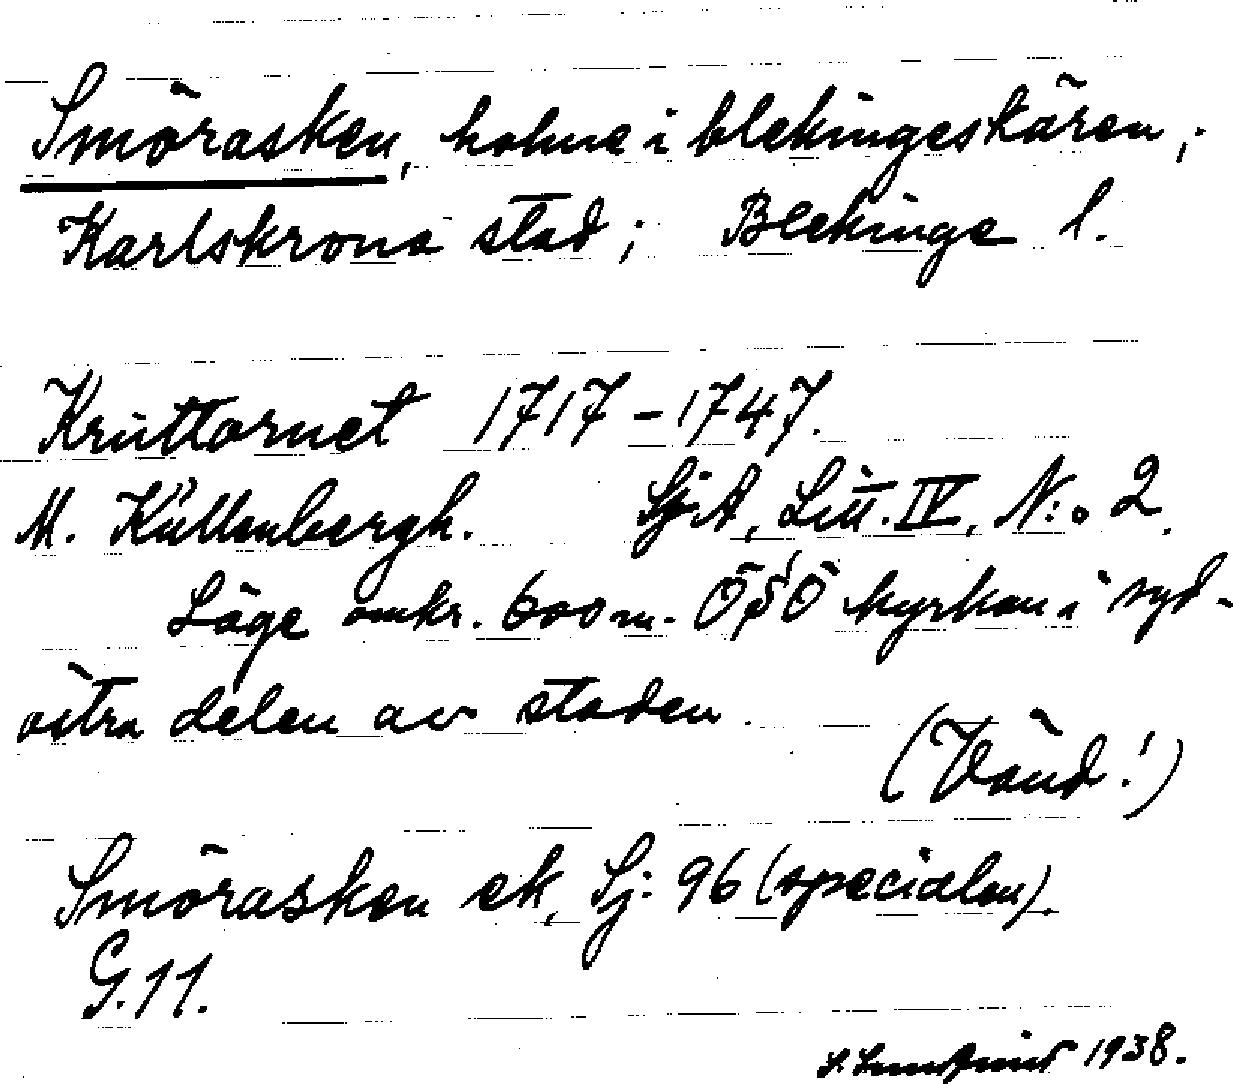 Smörasken, holme i blekingeskären,
Karlskrona stad; Blekinge l.
Kruttornet 1717-1747.
M. Küllenbergh. Sj.A, Litt. IV, N:o 2.
Läge omkr. 600 m. ÖSÖ kyrkan i syd-
östra delen av staden.
(Vänd!)
Smörasken ek, Sj: 96 (specialen).
G.11.
1938.